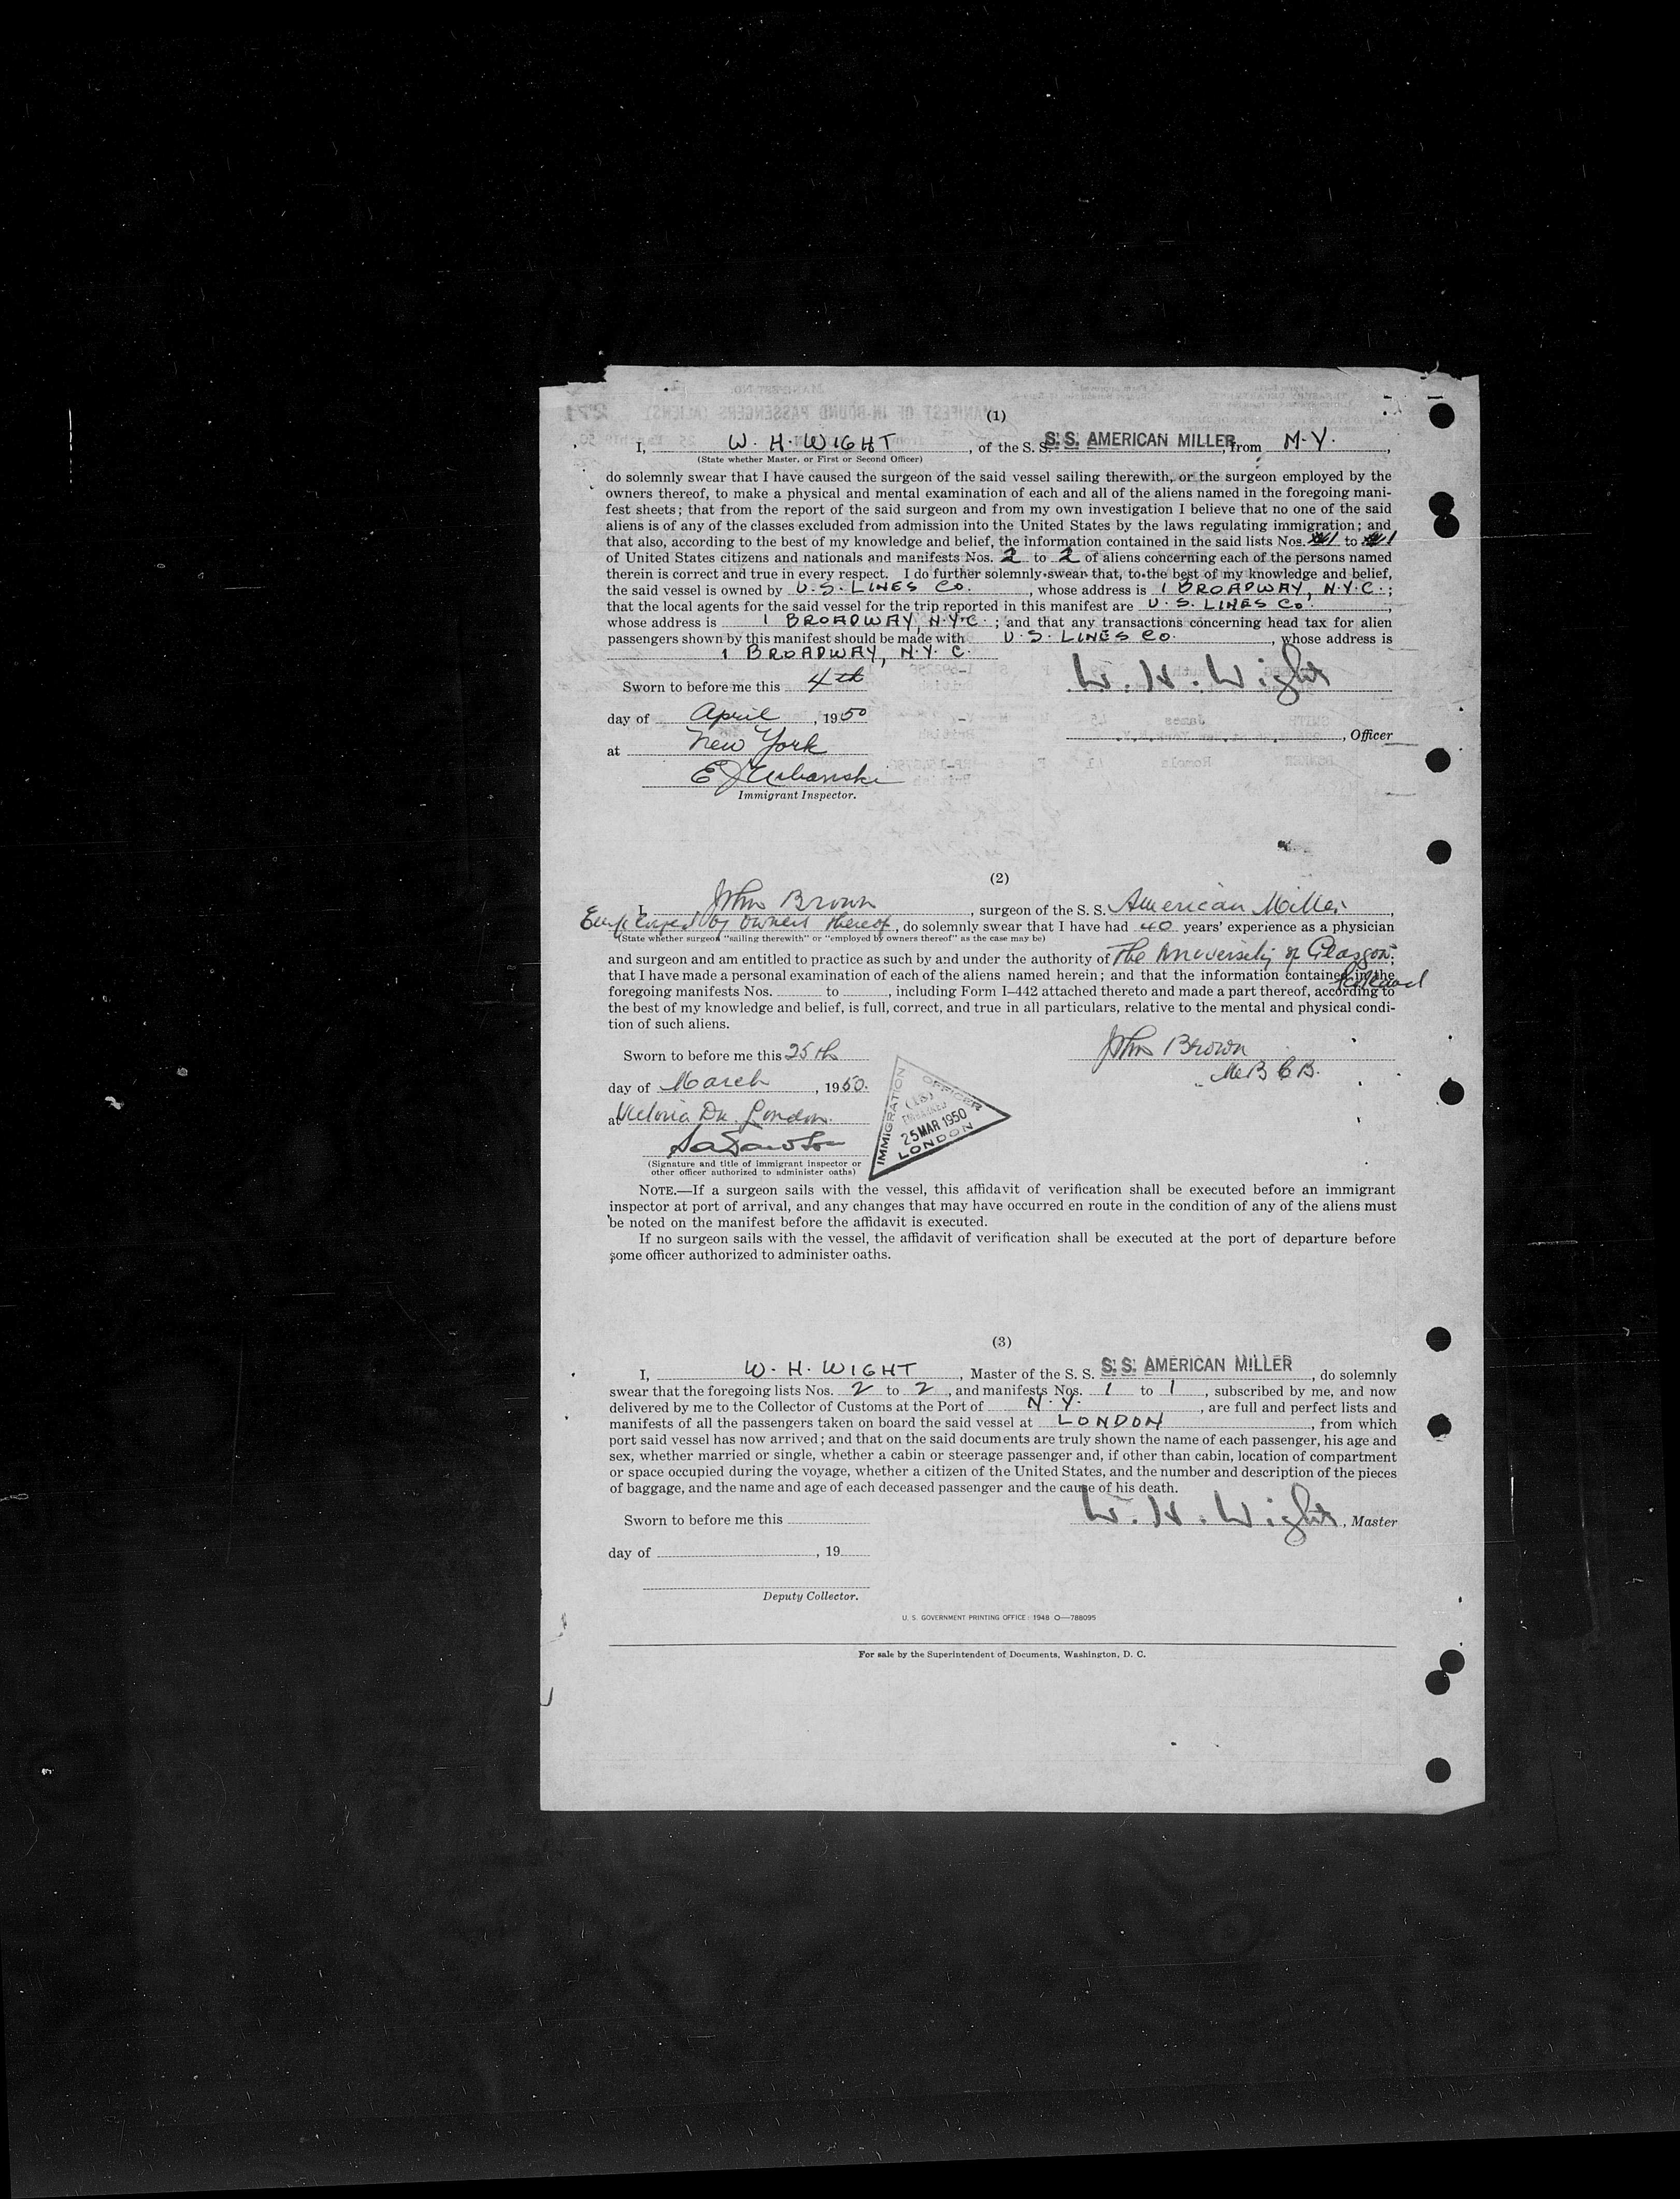 (1)
I, W. H. WIGHT, of the S. S. S. S. AMERICAN MILLER, from N.Y.,
(State whether Master, or First or Second Officer)
do solemnly swear that I have caused the surgeon of the said vessel sailing therewith, or the surgeon employed by the
owners thereof, to make a physical and mental examination of each and all of the aliens named in the foregoing mani-
fest sheets; that from the report of the said surgeon and from my own investigation I believe that no one of the said
aliens is of any of the classes excluded from admission into the United States by the laws regulating immigration; and
that also, according to the best of my knowledge and belief, the information contained in the said lists Nos. 1 to 1
of United States citizens and nationals and manifests Nos. 2 to 2 of aliens concerning each of the persons named
therein is correct and true in every respect. I do further solemnly swear that, to the best of my knowledge and belief,
the said vessel is owned by U.S. LINES Co., whose address is 1 BROADWAY, N.Y.C.;
that the local agents for the said vessel for the trip reported in this manifest are U.S. LINES Co.,
whose address is 1 BROADWAY, N.Y.C.; and that any transactions concerning head tax for alien
passengers shown by this manifest should be made with U.S. LINES Co., whose address is
1 BROADWAY, N.Y.C.
Sworn to before me this 4th W. H. Wight
day of April, 1950
at New York , Officer
E J Urbanski
Immigrant Inspector.
(2)
I, John Brown, surgeon of the S. S. American Miller,
Employed by owners thereof, do solemnly swear that I have had 40 years' experience as a physician
(State whether surgeon "sailing therewith" or "employed by owners thereof" as the case may be)
and surgeon and am entitled to practice as such by and under the authority of The University of Glasgow;
Scotland
that I have made a personal examination of each of the aliens named herein; and that the information contained in the
foregoing manifests Nos. to , including Form I-442 attached thereto and made a part thereof, according to
the best of my knowledge and belief, is full, correct, and true in all particulars, relative to the mental and physical condi-
tion of such aliens.
Sworn to before me this 25th John Brown
M.B. C.B.
day of March, 1950.
at Victoria Dk London
IMMIGRATION OFFICER
25 MAR 1950
LONDON
(Signature and title of immigrant inspector or
other officer authorized to administer oaths)
NOTE.—If a surgeon sails with the vessel, this affidavit of verification shall be executed before an immigrant
inspector at port of arrival, and any changes that may have occurred en route in the condition of any of the aliens must
be noted on the manifest before the affidavit is executed.
If no surgeon sails with the vessel, the affidavit of verification shall be executed at the port of departure before
some officer authorized to administer oaths.
(3)
I, W. H. WIGHT, Master of the S. S. S. S. AMERICAN MILLER, do solemnly
swear that the foregoing lists Nos. 2 to 2, and manifests Nos. 1 to 1, subscribed by me, and now
delivered by me to the Collector of Customs at the Port of N.Y., are full and perfect lists and
manifests of all the passengers taken on board the said vessel at LONDON, from which
port said vessel has now arrived; and that on the said documents are truly shown the name of each passenger, his age and
sex, whether married or single, whether a cabin or steerage passenger and, if other than cabin, location of compartment
or space occupied during the voyage, whether a citizen of the United States, and the number and description of the pieces
of baggage, and the name and age of each deceased passenger and the cause of his death.
Sworn to before me this W. H. Wight, Master
day of , 19
Deputy Collector.
U. S. GOVERNMENT PRINTING OFFICE: 1948 O—788095
For sale by the Superintendent of Documents, Washington, D. C.